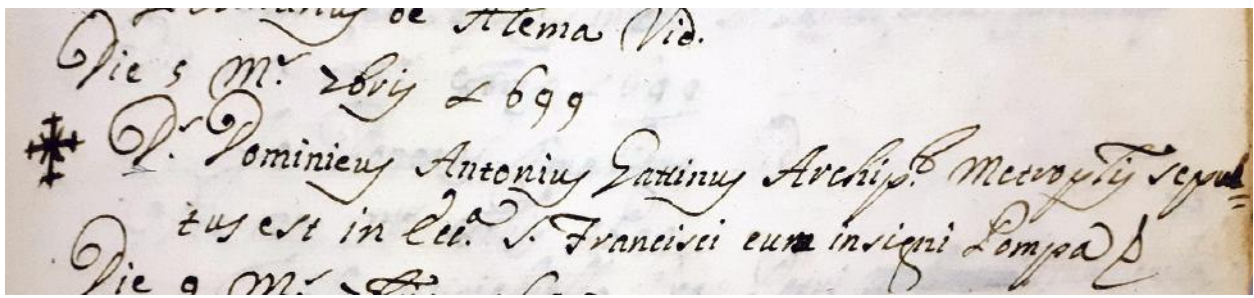 de Alema Vid.
Die 5 M.r 7bris 1699
D.r Dominicus Antonius Gattinus Archip.r Metroptis sepul=
tus est in Ecc.a S. Francisci cum insigni Pompa
Die 9 M.r